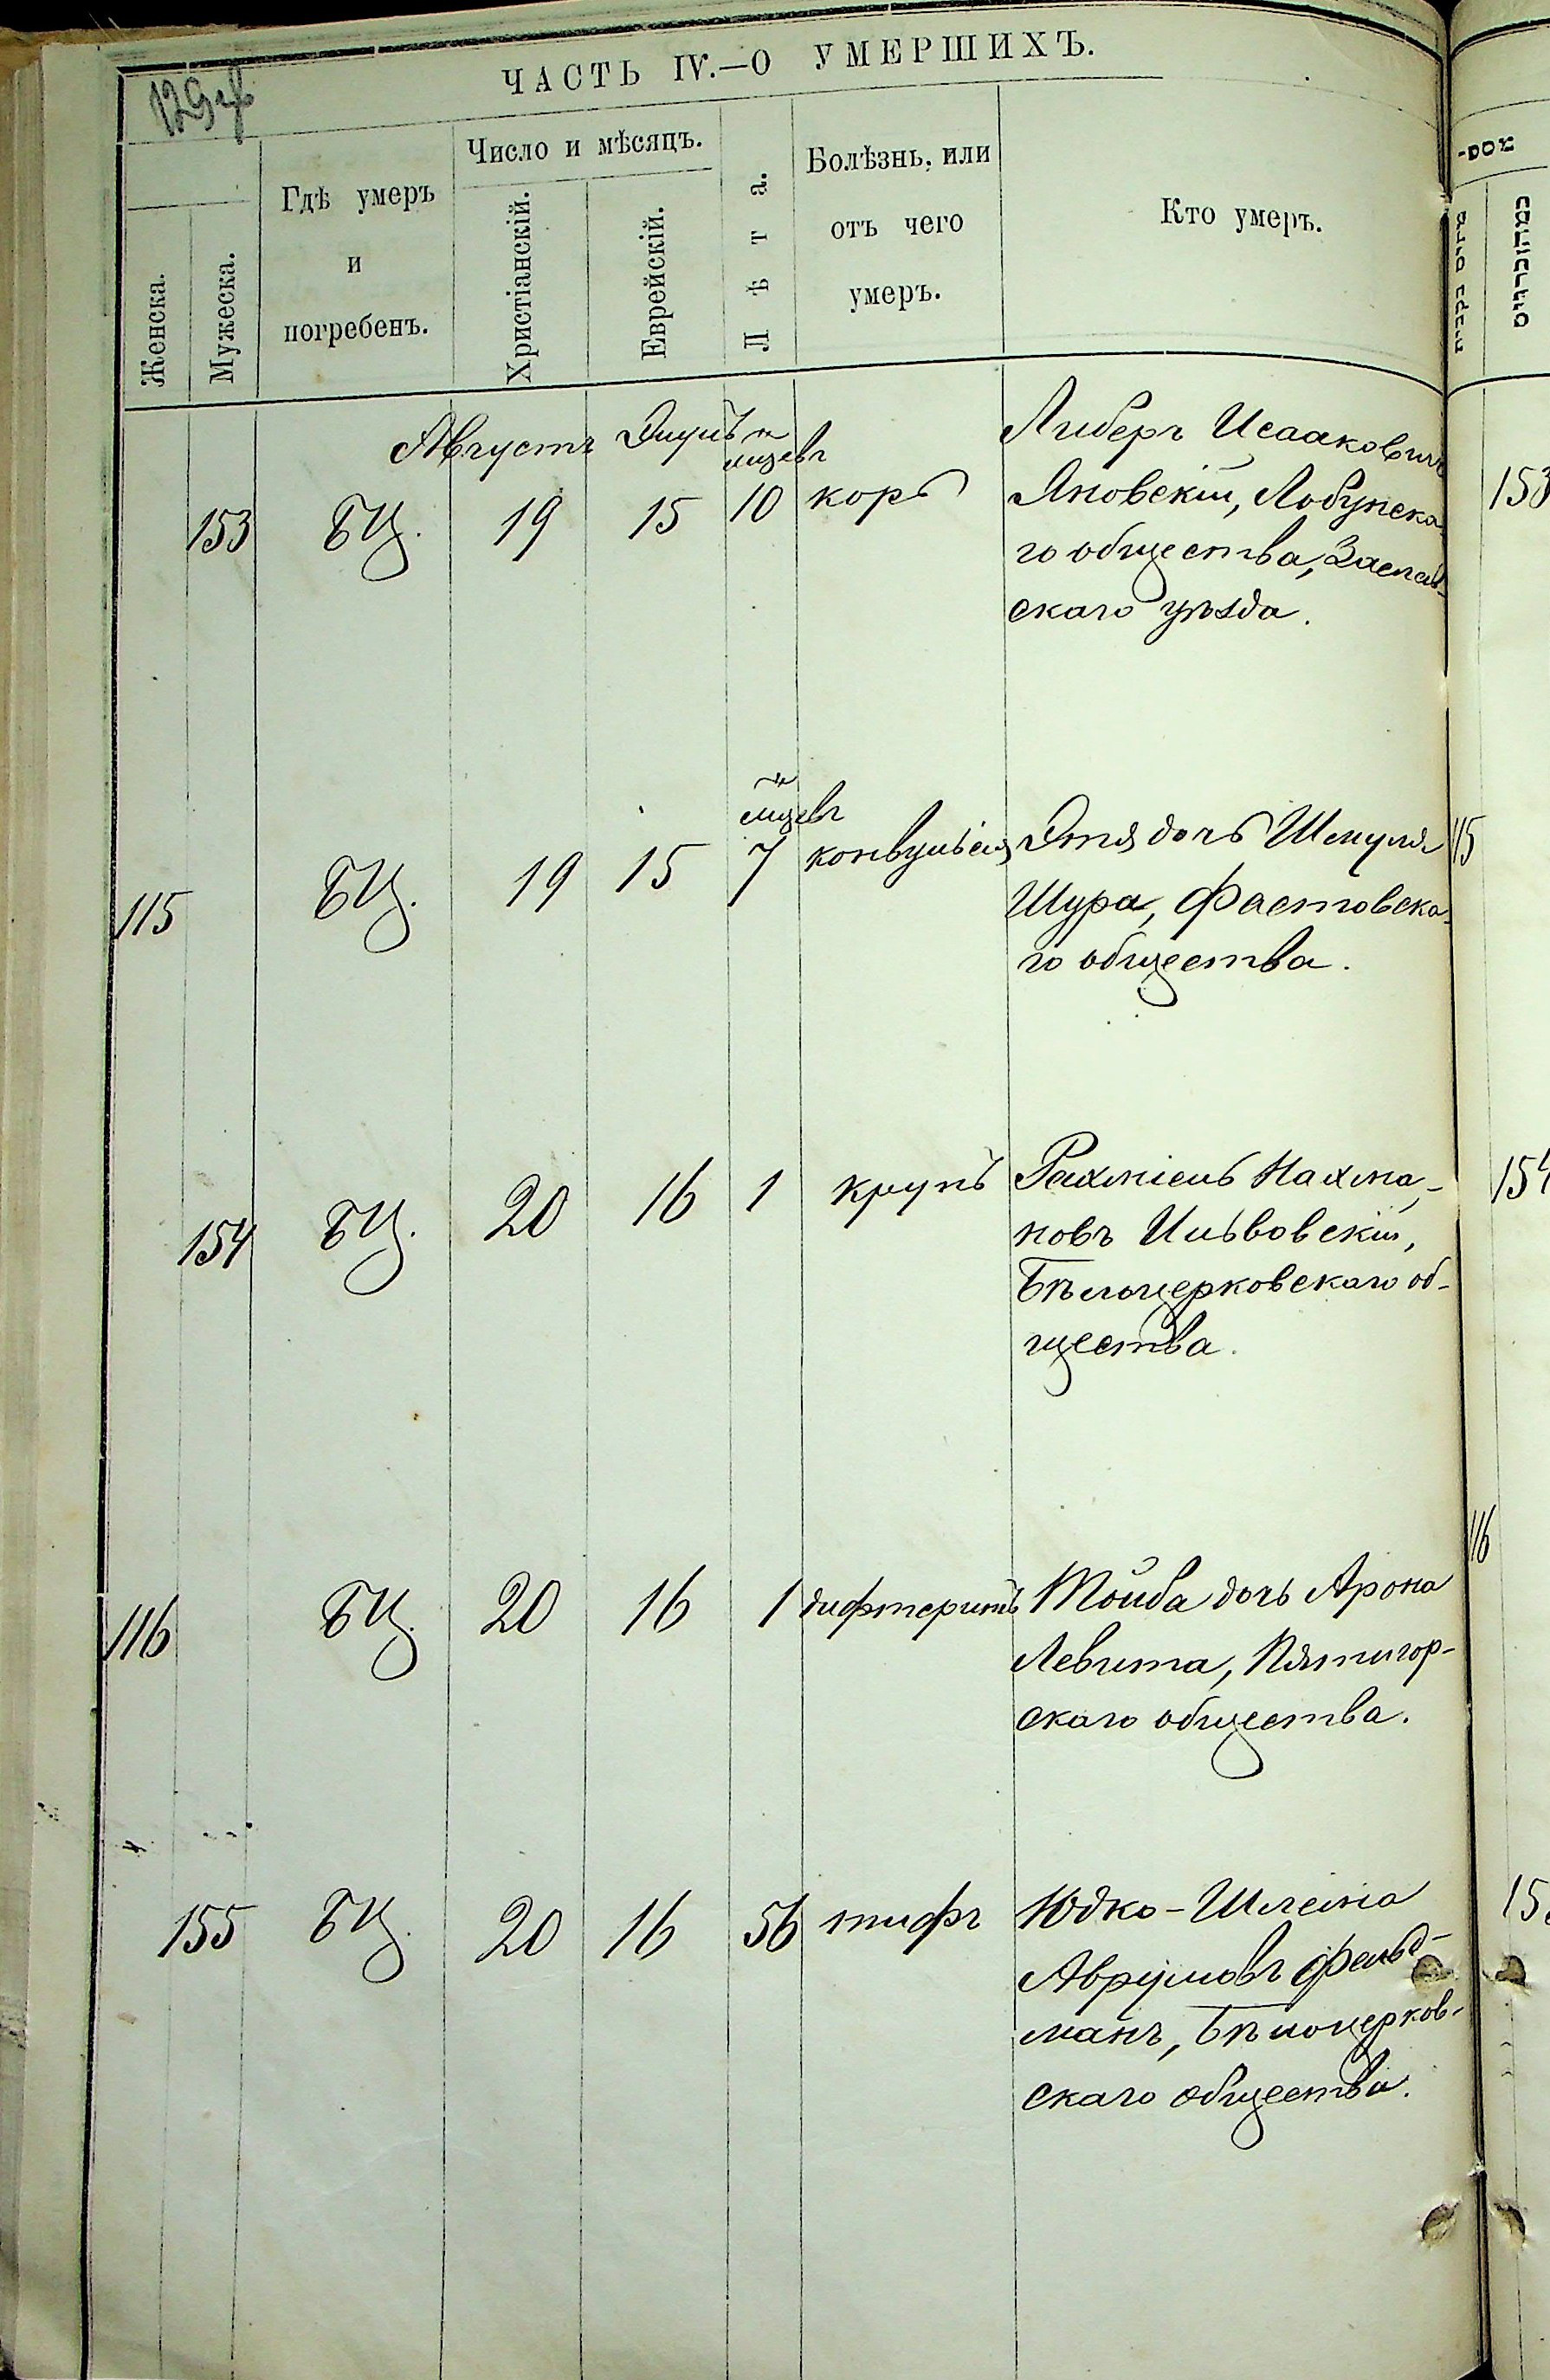 129 об
ЧАСТЬ IV.—О УМЕРШИХЪ.
Женска.
Мужеска.
Гдѣ умеръ
и
погребенъ.
Число и мѣсяцъ.
Христіанскій.
Еврейскій.
Лѣта.
Болѣзнь, или
отъ чего
умеръ.
Кто умеръ.
Августъ Элулъ м-цевъ Либеръ Исааковичъ
153 БЦ. 19 15 10 корь Яновскій, Лабунска-
го общества, Заслав-
скаго уѣзда.
м-цевъ
115 БЦ. 19 15 7 конвульсія Этя дочь Шмуля
Шура, Фастовска-
го общества.
154 БЦ. 20 16 1 крупъ Рахміель Нахма-
новъ Ильвовскій,
Бѣлоцерковскаго об-
щества.
116 БЦ. 20 16 1 дифтеритъ Тойба дочь Арона
Левита, Пятигор-
скаго общества.
155 БЦ. 20 16 56 тифъ Юдко-Шлема
Аврумовъ Фельд-
манъ, Бѣлоцерков-
скаго общества.
153
115
154
116